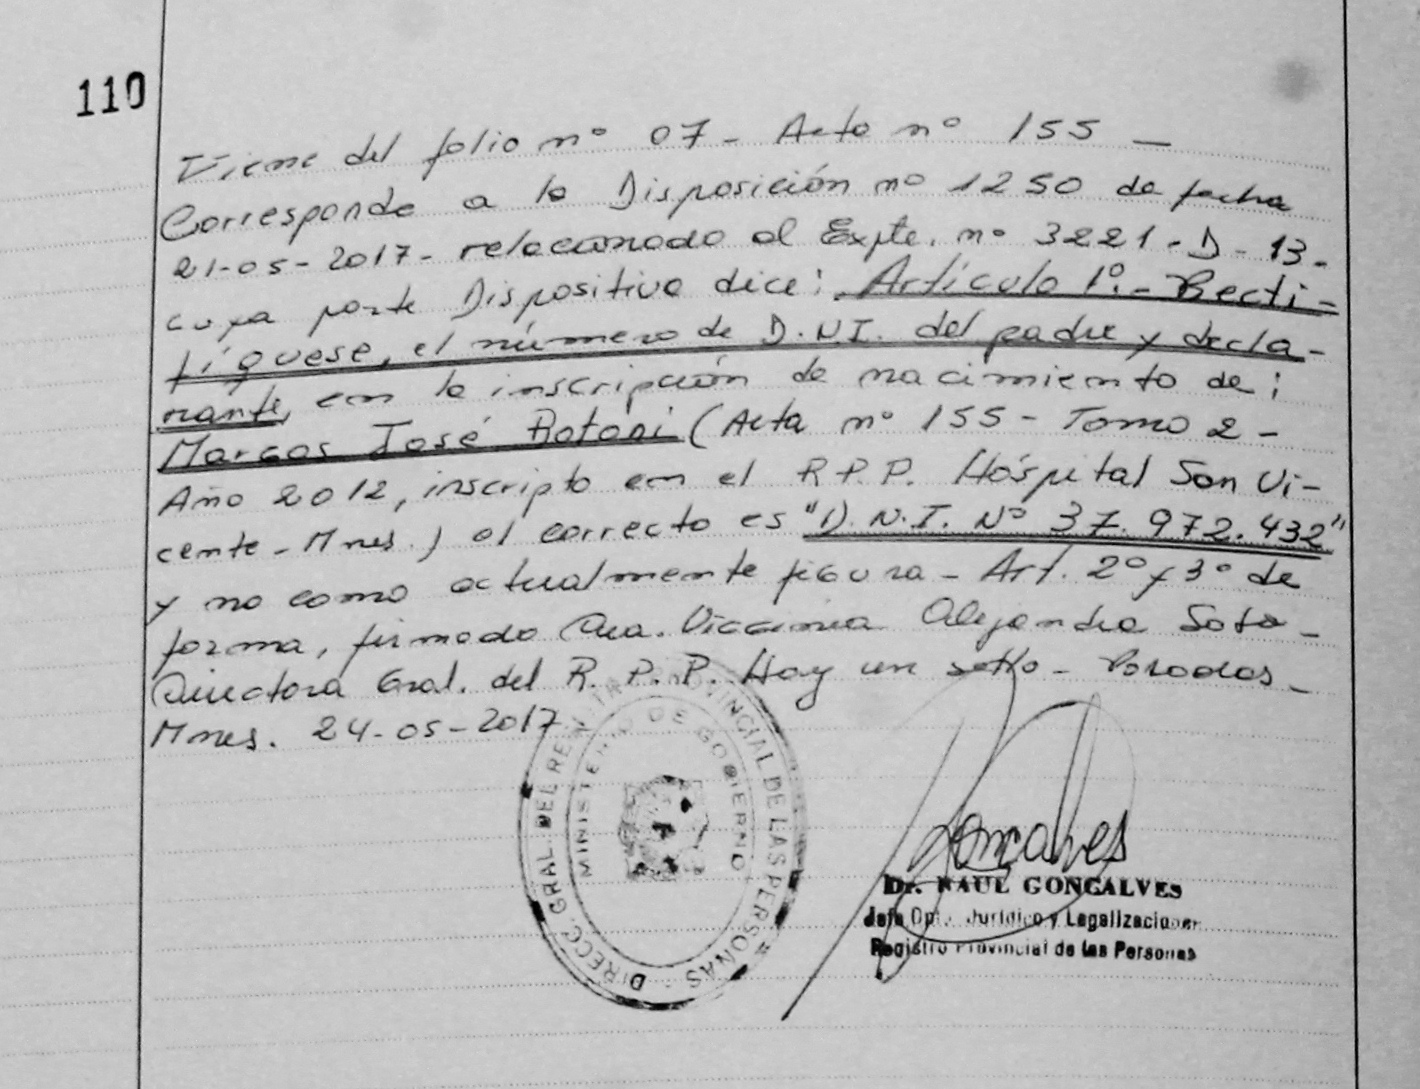 110
Viene del folio nº 07 - Acta nº 155 —
Corresponde a la Disposición nº 1250 de fecha
21-05-2017- relacionado al Expte. nº 3221-D-13-
cuya parte Dispositiva dice: Artículo 1º.- Recti-
fíquese, el número de D.NI. del padre y decla-
rante, en la inscripción de nacimiento de:
Marcos José (Acta nº 155 - Tomo 2 -
Año 2012, inscripto en el R.P.P. Hospital San Vi-
cente - Mnes.) el correcto es "D.N.I. Nº 37.972.432"
y no como actualmente figura - Art. 2º y 3º de
forma, firmado Dra. Alejandra Soto -
Directora Gral. del R.P.P. Hay un sello - Posadas -
Mnes. 24-05-2017
DIRECC. GRAL. DEL REGISTRO PROVINCIAL DE LAS PERSONAS
MINISTERIO DE GOBIERNO
Goncalves
Dr. RAUL GONCALVES
Jefe Dpto. Jurídico y Legalizaciones
Registro Provincial de las Personas